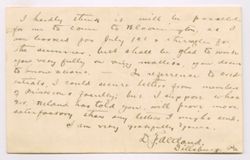 I hardly think it will be possible
for me to come to Bloomington, as I
am booked for July at a
the summer, but shall be glad to write
you very fully on any matter, you desire
to know about. — In reference to cred-
entials, I could secure letters from members
of Princeton faculty; but I suppose what
Mr. has told you, will prove more
satisfactory than any letters I might send.
I am very respectfully yours,
D. J.
Pa.